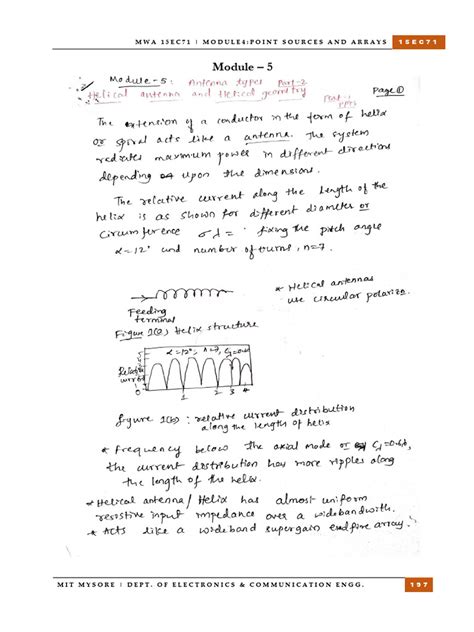 MWA 15EC71 | MODULE4:POINT SOURCES AND ARRAYS 15EC71
Module – 5
Module-5: Antenna types Part-2
Helical antenna and Helical geometry Page ①
The extension of a conductor in the form of helix
or spiral acts like a antenna. The system
radiates maximum power in different directions
depending upon the dimensions.
The relative current along the length of the
helix is as shown for different diameter or
Circumference fixing the pitch angle
α=12° and number of turns, n=7.
* Helical antennas
use circular polariz.
Feeding
terminal
Figure 1(a) Helix structure
α=12°, n=7,
Relative
current
0 1 2 3 4
figure 1(b) : relative current distribution
along the length of helix
* Frequency below the axial mode or Cλ=0.6λ,
the current distribution has more ripples along
the length of the helix.
* Helical antenna/Helix has almost uniform
resistive input impedance over a wide bandwith.
* Acts like a wideband supergain endfire array.
MIT MYSORE | DEPT. OF ELECTRONICS & COMMUNICATION ENGG. 197